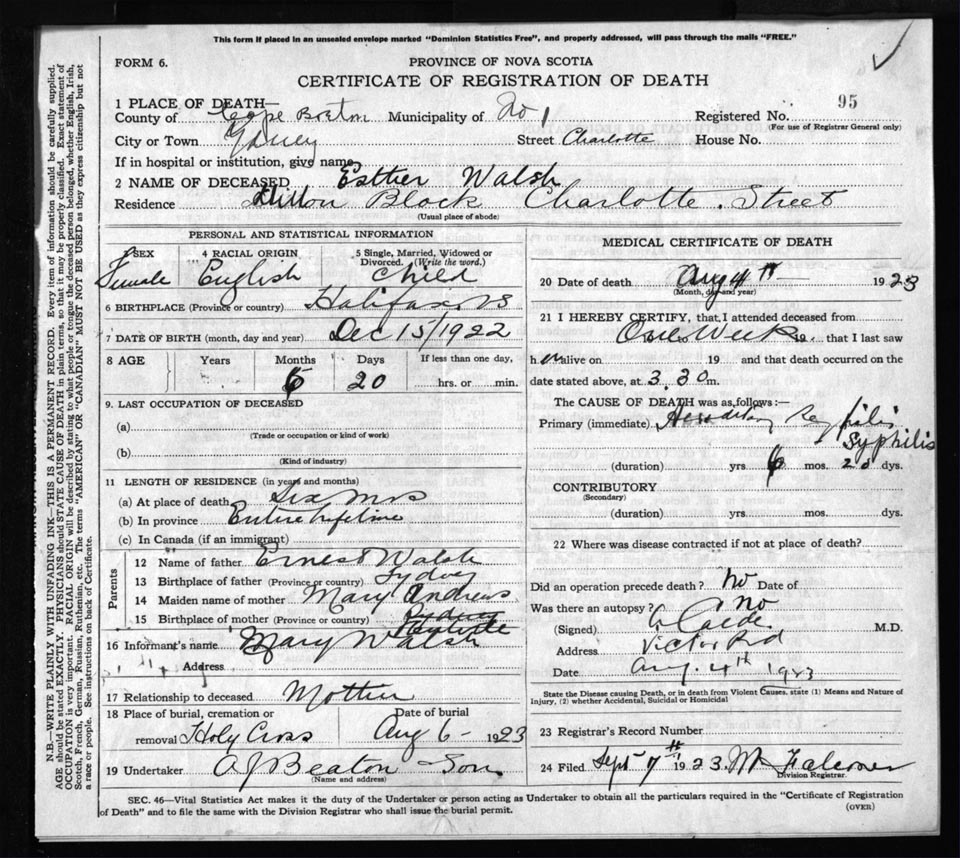 This form if placed in an unsealed envelope marked "Dominion Statistics Free", and properly addressed, will pass through the mails "FREE."
FORM 6.
PROVINCE OF NOVA SCOTIA
CERTIFICATE OF REGISTRATION OF DEATH
1 PLACE OF DEATH—
95
County of Cape Breton Municipality of No 1 Registered No.
(For use of Registrar General only)
City or Town Sydney Street Charlotte House No.
If in hospital or institution, give name
2 NAME OF DECEASED Esther Walsh
Residence Block Charlotte Street
(Usual place of abode)
PERSONAL AND STATISTICAL INFORMATION
3 SEX 4 RACIAL ORIGIN 5 Single, Married, Widowed or Divorced. (Write the word.)
Female English Child
6 BIRTHPLACE (Province or country) Halifax NS
7 DATE OF BIRTH (month, day and year) Dec 15/1922
8 AGE Years Months Days If less than one day,
6 20 hrs. or min.
9. LAST OCCUPATION OF DECEASED
(a)
(Trade or occupation or kind of work)
(b)
(Kind of industry)
11 LENGTH OF RESIDENCE (in years and months)
(a) At place of death Six Mos
(b) In province Entire lifetime
(c) In Canada (if an immigrant)
Parents
12 Name of father Ernest Walsh
13 Birthplace of father (Province or country) Sydney
14 Maiden name of mother Mary Andrews
15 Birthplace of mother (Province or country) Sydney
16 Informant's name Mary Walsh
Address
17 Relationship to deceased Mother
18 Place of burial, cremation or Date of burial
removal Holy Cross Aug 6 - 1923
19 Undertaker A J Beaton Son
(Name and address)
MEDICAL CERTIFICATE OF DEATH
20 Date of death Aug 4th 1923
(Month, day and year)
21 I HEREBY CERTIFY, that I attended deceased from
One Week 19 that I last saw
h er alive on 19 and that death occurred on the
date stated above, at 3.30 m.
The CAUSE OF DEATH was as follows:—
Primary (immediate) Hereditary
Syphilis
(duration) yrs 6 mos. 20 dys.
CONTRIBUTORY
(Secondary)
(duration) yrs. mos. dys.
22 Where was disease contracted if not at place of death?
Did an operation precede death? No Date of
Was there an autopsy? No
(Signed) M.D.
Address Victoria Rd
Date Aug. 4th 1923
State the Disease causing Death, or in death from Violent Causes, state (1) Means and Nature of Injury, (2) whether Accidental, Suicidal or Homicidal
23 Registrar's Record Number
24 Filed Sept 7th 1923. Falconer
Division Registrar.
SEC. 46—Vital Statistics Act makes it the duty of the Undertaker or person acting as Undertaker to obtain all the particulars required in the "Certificate of Registration
of Death" and to file the same with the Division Registrar who shall issue the burial permit.
(OVER)
N.B.—WRITE PLAINLY WITH UNFADING INK—THIS IS A PERMANENT RECORD. Every item of information should be carefully supplied.
AGE should be stated EXACTLY. PHYSICIANS should STATE CAUSE OF DEATH in plain terms, so that it may be properly classified. Exact statement of
OCCUPATION is very important. RACIAL ORIGIN will be described by stating to what people or tongue the deceased person belonged, whether English, Irish,
Scotch, French, German, Russian, Ruthenian, etc. The terms "AMERICAN" or "CANADIAN" MUST NOT BE USED as they express citizenship but not
a race or people. See instructions on back of Certificate.